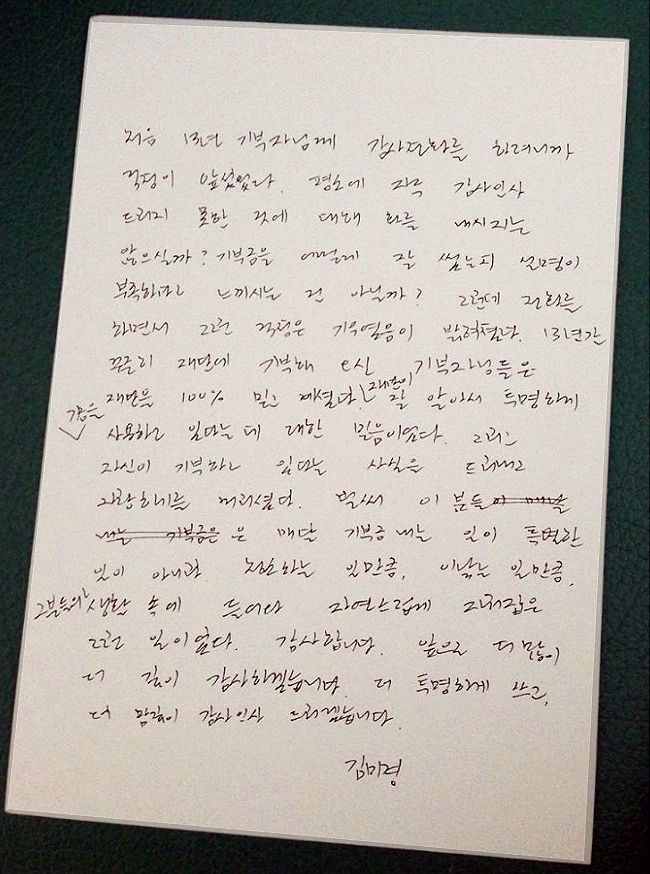 처음 13년 기부자님께 감사전화를 하려니까
걱정이 앞섰었다. 평소에 자주 감사인사
드리지 못한 것에 대해 화를 내시지는
않으실까? 기부금을 어떻게 잘 썼는지 설명이
부족하다고 느끼시는 건 아닐까? 그런데 전화를
하면서 그런 걱정은 기우였음이 밝혀졌다. 13년간
꾸준히 재단에 기부해 오신 기부자님들은
재단을 100% 믿고 계셨다. 재단이 잘 알아서 투명하게
기금을 사용하고 있다는 데 대한 믿음이었다. 그리고
자신이 기부하고 있다는 사실을 드러내고
자랑하기를 꺼리셨다. 벌써 이 분들
내는 기부금은 은 매달 기부금 내는 일이 특별한
일이 아니라 청소하는 일만큼, 이닦는 일만큼,
그분들의 생활 속에 들어와 자연스럽게 자리잡은
그런 일이었다. 감사합니다. 앞으로 더 많이
더 깊이 감사하겠습니다. 더 투명하게 쓰고,
더 맘깊이 감사인사 드리겠습니다.
김미경